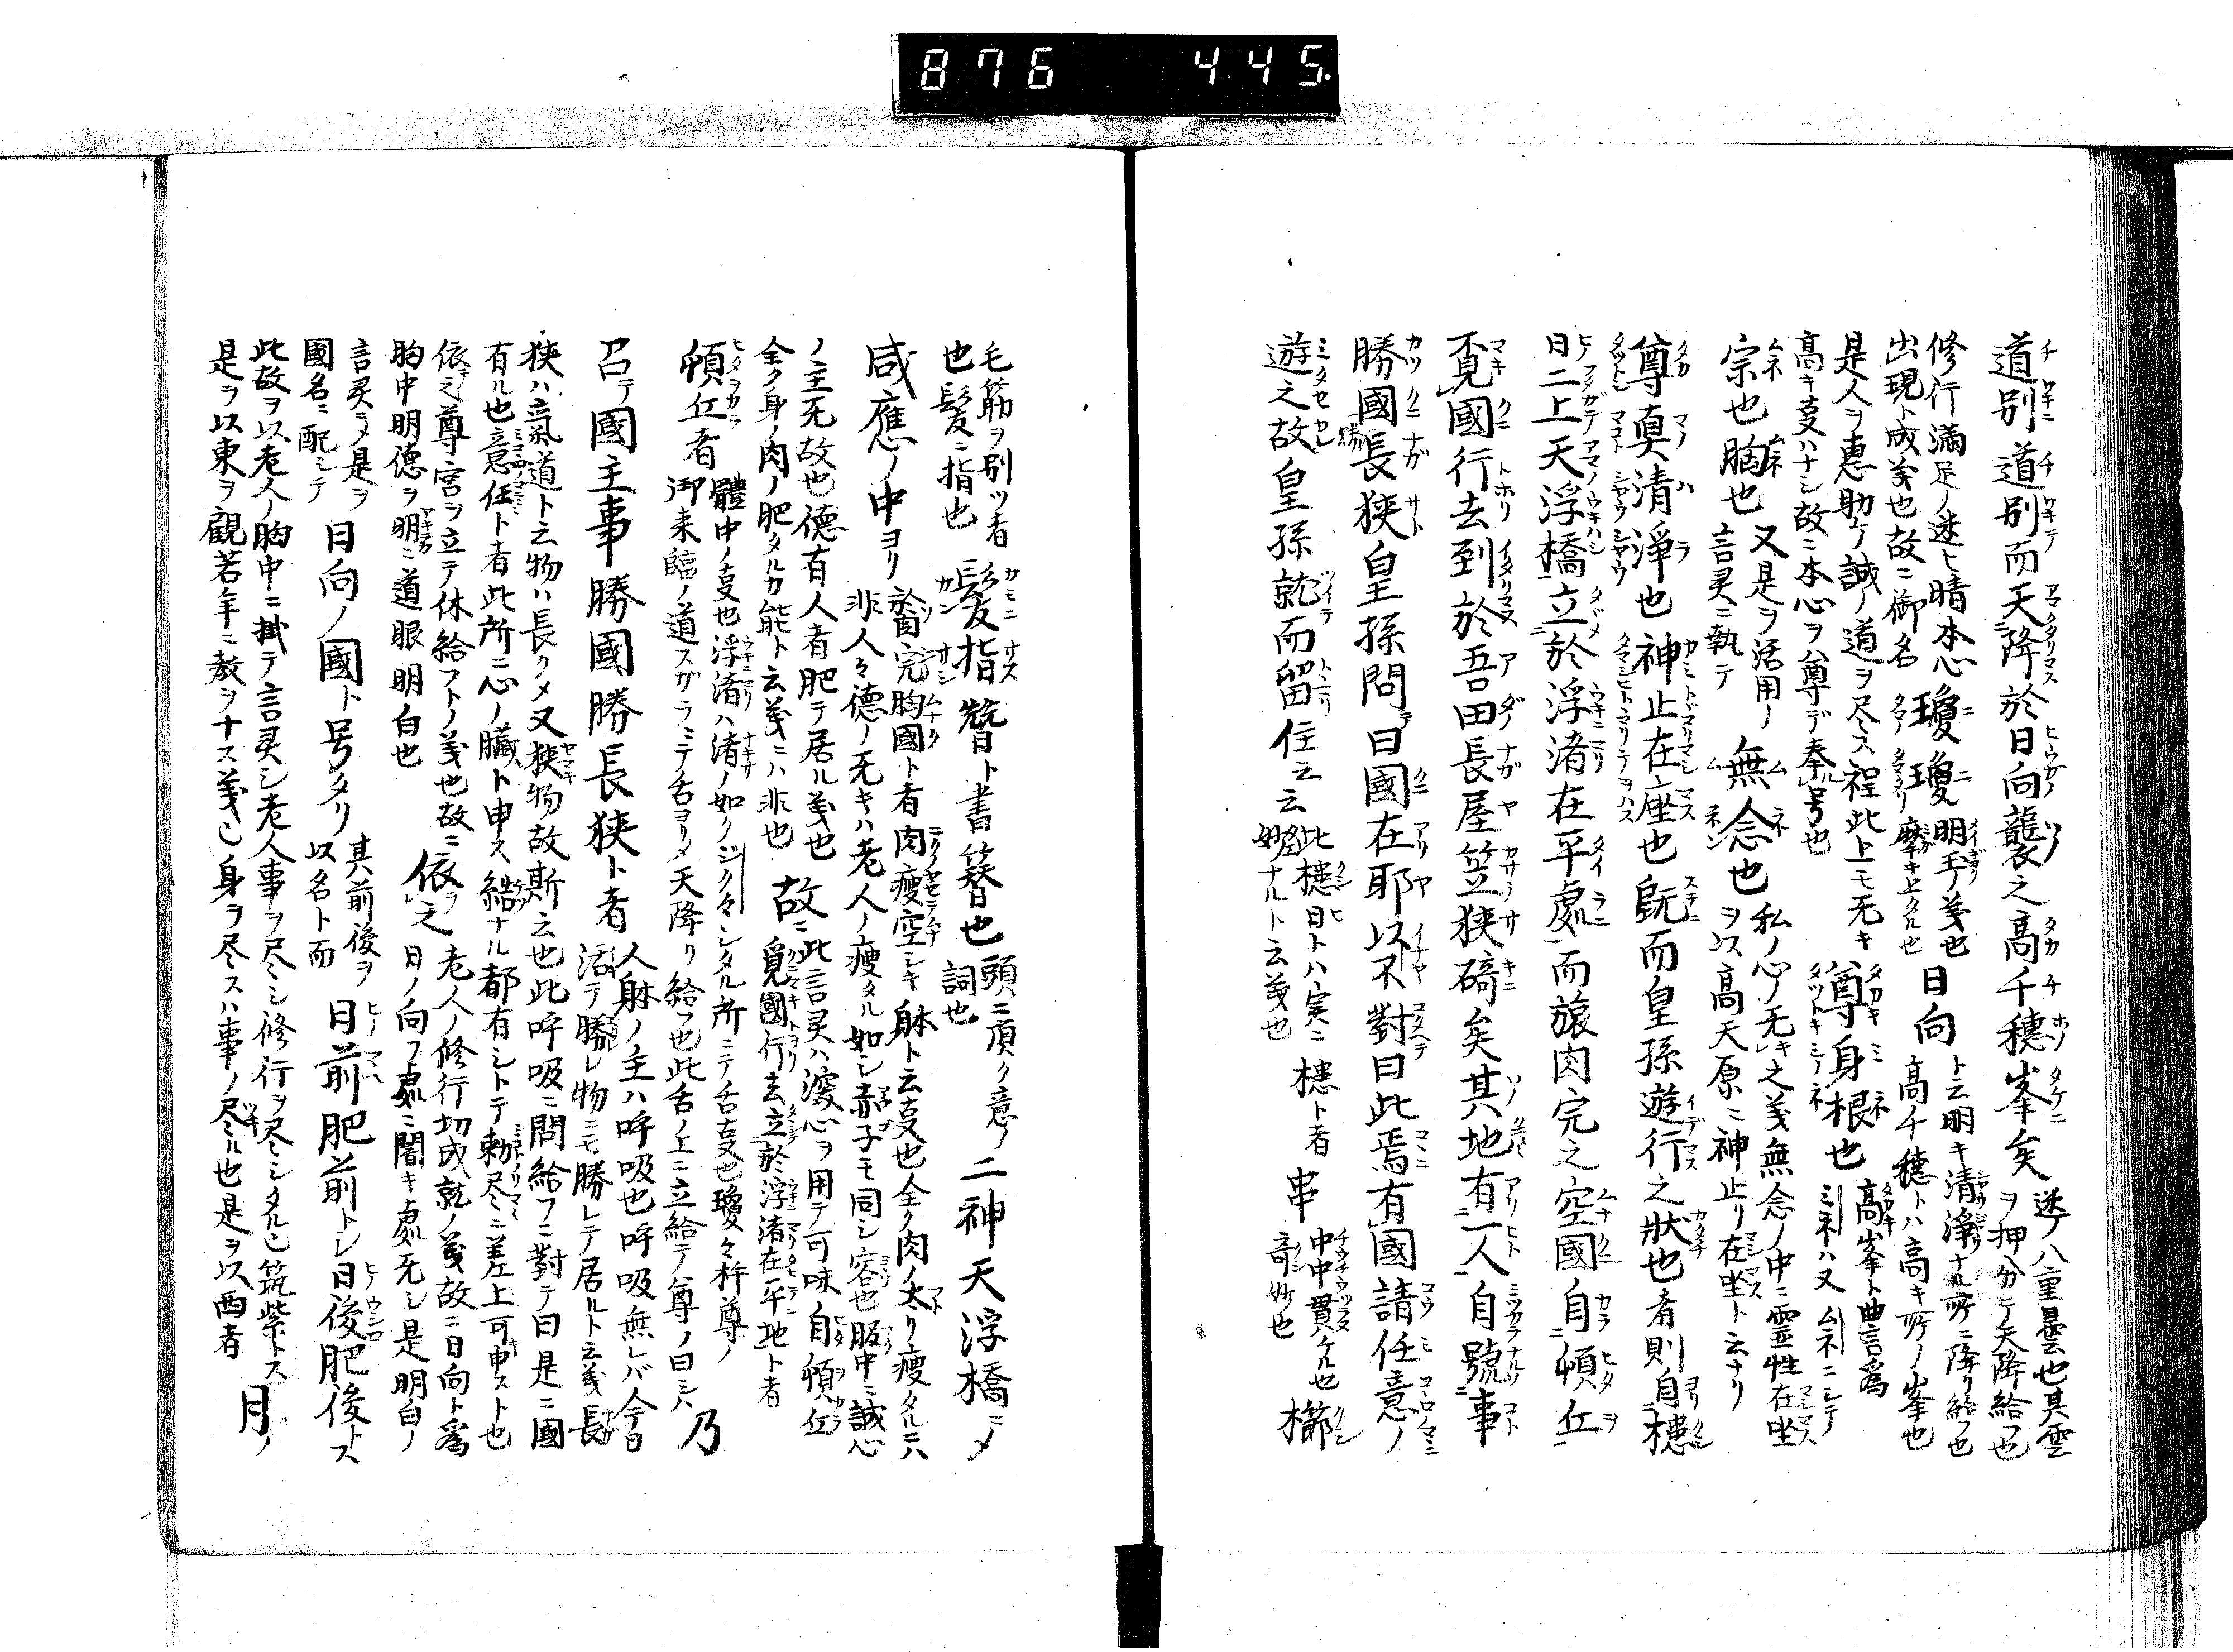 876 445.
道別道別而天降於日向襲之高千穂峯矣
迷ノ八重曇也其雲
ヲ押分テ天降給フ也
修行滿足ノ迷ヒ晴本心瓊瓊明玉ノ義也
出現ト成義也故ニ御名
日向ト云明キ清浄ナル所ニ降リ給フ也
高千穂トハ高キ所ノ峯也
是人ヲ惠助ケ誠ノ道ヲ尽ス程此上モ无キ
高キ支ハナシ故ニ本心ヲ尊デ奉ル号也
尊身根也
高峯ト曲言爲
ミネハ又ムネニシテ
宗也胸也
又是ヲ活用ノ
言灵ニ執テ
無念也
私ノ心ノ无キ之義無念ノ中ニ霊性在坐
ヲ以高天原ニ神止リ在坐ト云ナリ
尊真清浄也神止在座也既而皇孫遊行之狀也者則自槵
日二上天浮橋立於浮渚在平處而膂肉完之空國自頓丘
覓國行去到於吾田長屋笠狭碕矣其地有一人自號事
勝國勝長狭皇孫問曰國在耶以不對曰此焉有國請任意ノ
遊之故皇孫就而留住云云
此槵日トハ実ニ
妙ナルト云義也
槵ト者串
中中貫ケル也
奇妙也
櫛
毛筋ヲ別ツ者
也髪ニ指也
髪指簪ト書簪也
頭ニ頂ク意ノ
詞也
二神天浮橋ニメ
咸應ノ中ヨリ
膂完胸國ト者肉瘦空シキ躰ト云支也全ク肉ノ太リ瘦タルニハ
非人々德ノ无キハ老人ノ瘦タル如シ赤子モ同シ容也服中ニ誠心
ノ主无故也德有人者肥テ居ル義也
全ク身ノ肉ノ肥タルカ能ト云義ニハ非也
故ニ此言灵ハ深心ヲ用テ可味自頓丘
覓國行去立於浮渚在平地ト者
頓丘者
體中ノ支也浮渚ハ渚ノ如クジク々シタル所ニテ舌支也瓊々杵尊ノ
御来臨ノ道スガラニテ舌ヨリメ天降リ給フ也此舌ノ上ニ立給テ尊ノ曰シハ
乃
召テ國主事勝國勝長狭ト者
人躰ノ主ハ呼吸也呼吸無レバ今日
活テ勝レ物ニモ勝レテ居ルト云義長
狭ハ立氣道ト云物ハ長クメ又狭物故斯云也此呼吸ニ問給フニ對テ曰是ニ國
有ル也意任ト者此所ニ心ノ臓ト申ス結ナル都有シトテ勅尽ニ差上可申スト也
依之尊宮ヲ立テ休給フトノ義也故ニ
胸中明德ヲ明ニ道眼明白也
依之
老人ノ修行切成就ノ義故ニ日向ト爲
日ノ向フ處ニ闇キ處无シ是明白ノ
言灵ニメ是ヲ
國名ニ配シテ
日向ノ國ト号タリ
其前後ヲ
以名ト而
日前肥前トシ日後肥後トス
此故ヲ以老人ノ胸中ニ掛テ言灵シ老人事ヲ尽シ修行ヲ尽シタル也筑紫トス
是ヲ以東ヲ觀若年ニ教ヲナス義也身ヲ尽スハ事ノ尽ル也是ヲ以西者
月ノ